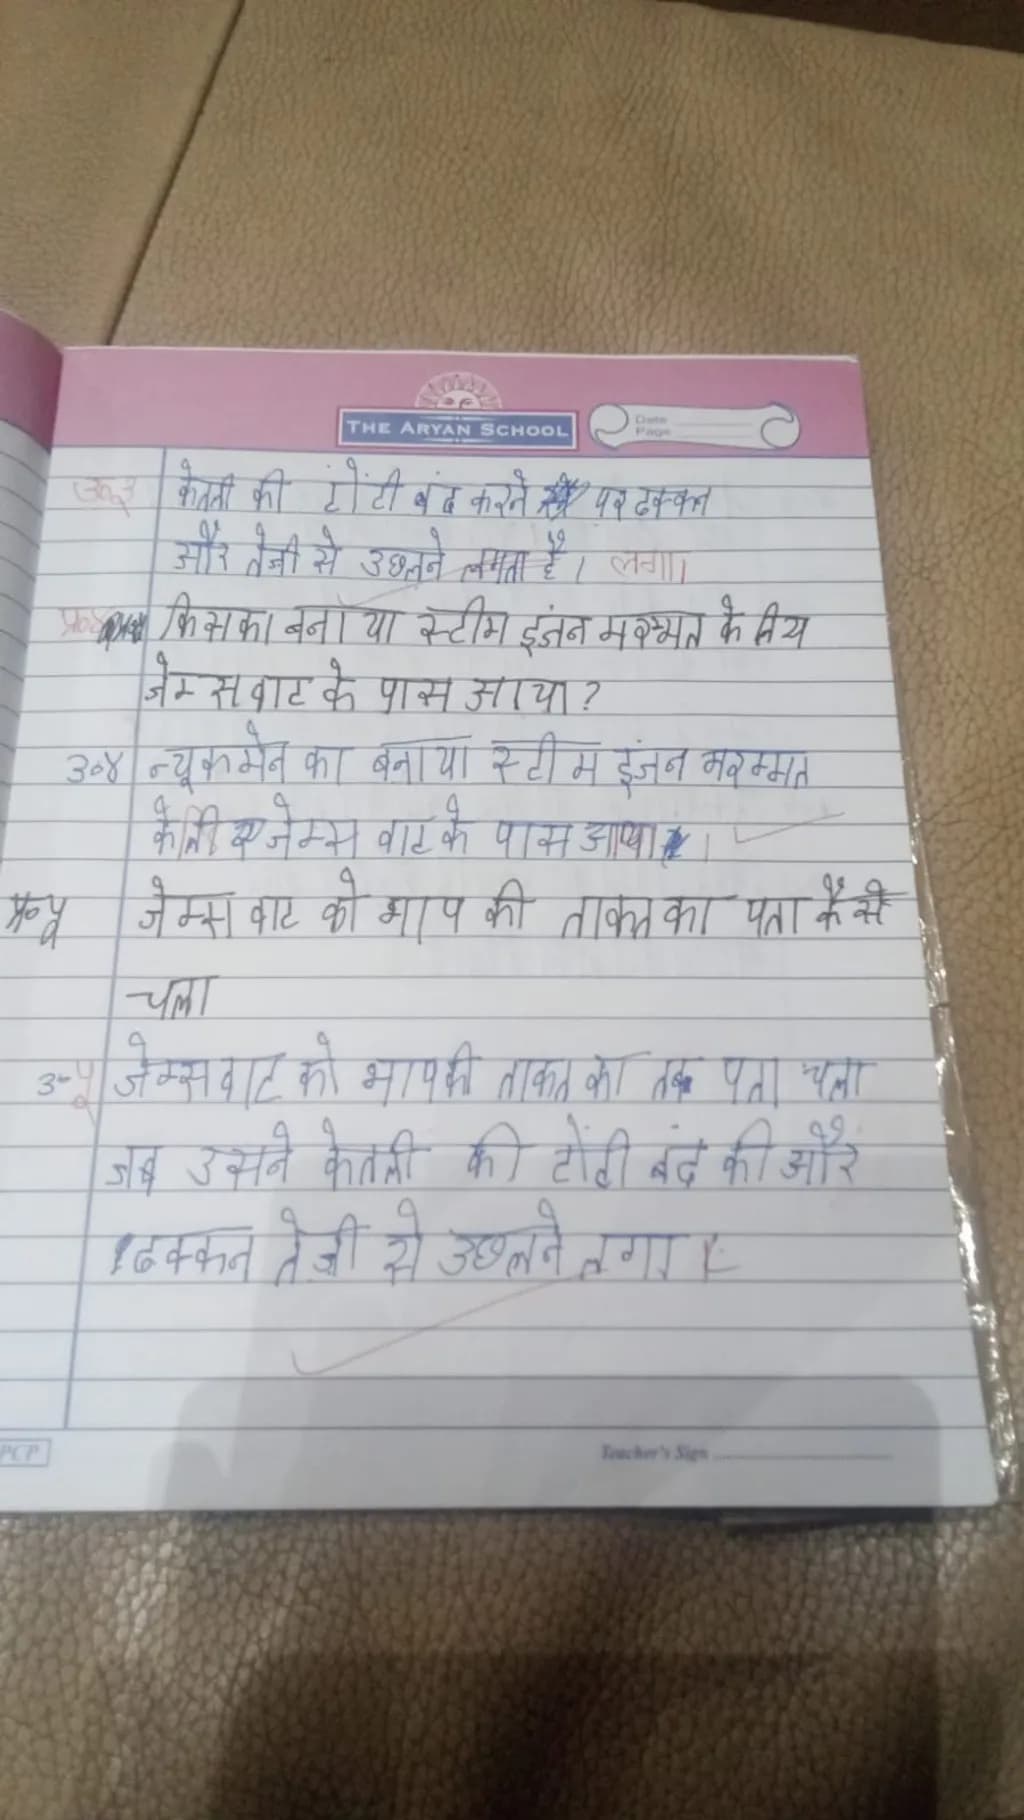 THE ARYAN SCHOOL
Date
Page
उ०३ केतली की टोंटी बंद करने पर ढक्कन
और तेजी से उछलने लगता है। लगा।
प्र०४ किसका बनाया स्टीम इंजन मरम्मत के लिय
जेम्स वाट के पास आया?
उ०४ न्यूकमेन का बनाया स्टीम इंजन मरम्मत
के लिए जेम्स वाट के पास आया।
प्र०५ जेम्स वाट को भाप की ताकत का पता कैसे
चला
उ०५ जेम्स वाट को भाप की ताकत का तब पता चला
जब उसने केतली की टोंटी बंद की और
ढक्कन तेजी से उछलने लगा।
PCP
Teacher's Sign